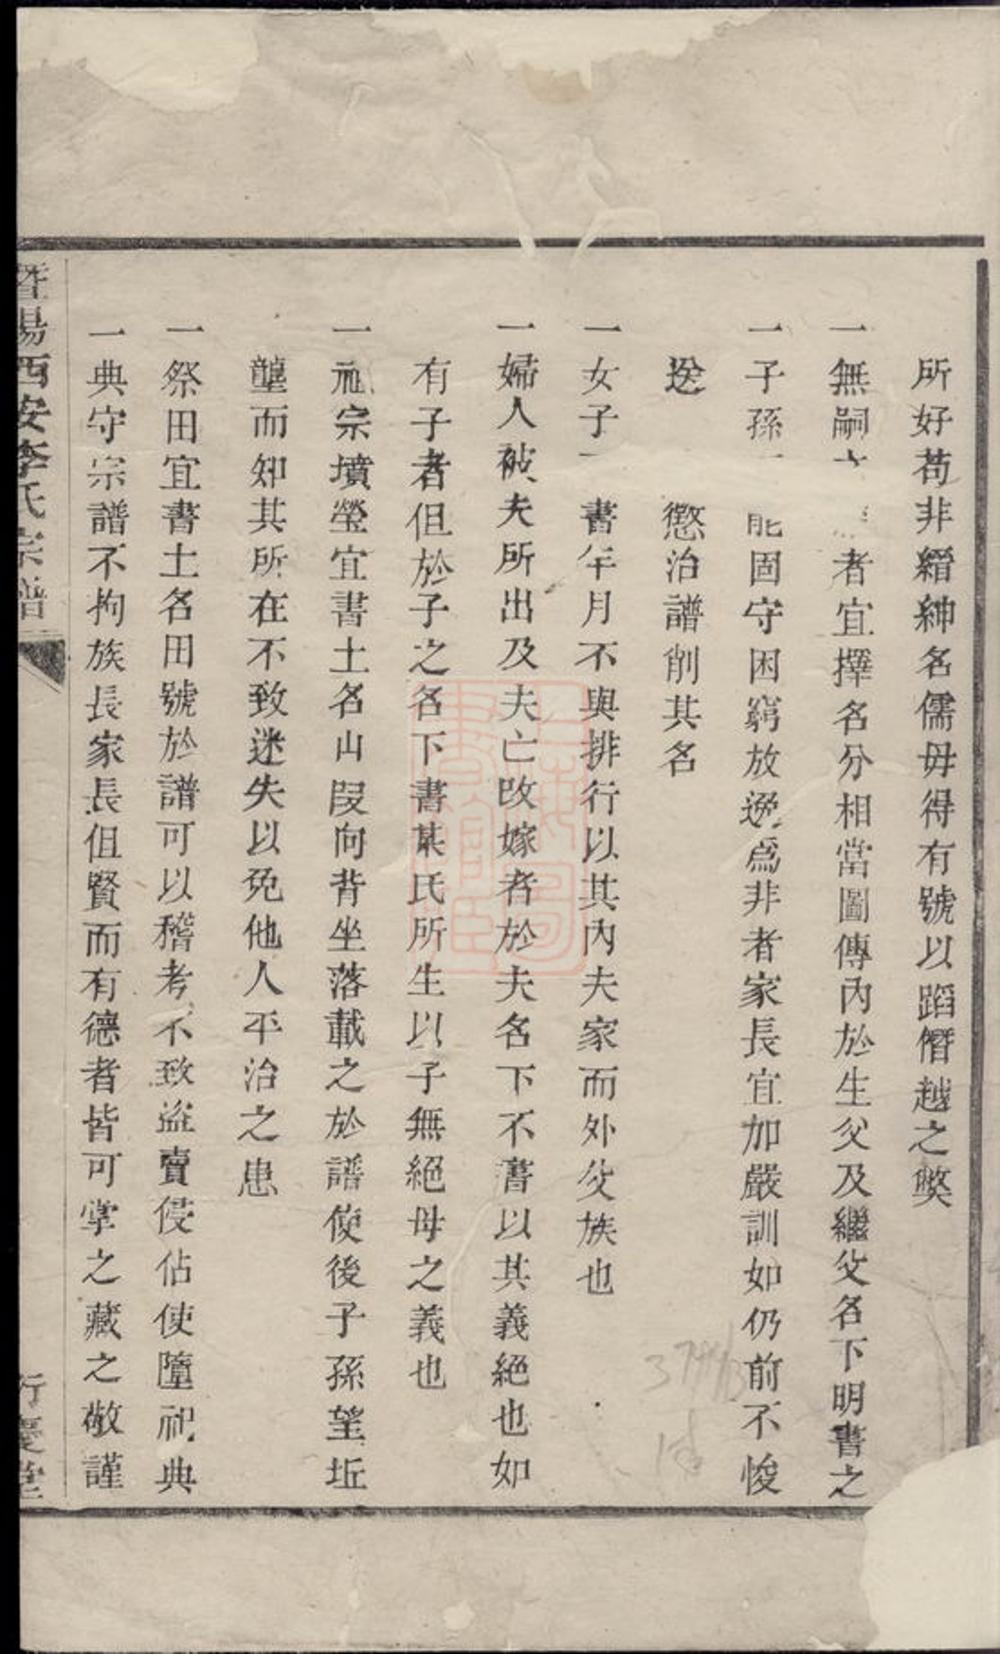 所好苟非縉紳名儒毋得有號以蹈僭越之獘
一無嗣者宜擇名分相當圖傳內於生父及繼父名下明書之
一子孫能固守困窮放逸爲非者家長宜加嚴訓如仍前不悛
送懲治譜削其名
一女子書年月不與排行以其內夫家而外父族也
一婦人被夫所出及夫亡改嫁者於夫名下不書以其義絕也如
有子者但於子之名下書某氏所生以子無絕母之義也
一祖宗墳塋宜書土名山叚向背坐落載之於譜使後子孫望坵
壟而知其所在不致迷失以免他人平治之患
一祭田宜書土名田號於譜可以稽考不致盜賣侵佔使墮祀典
一典守宗譜不拘族長家長伹賢而有德者皆可掌之藏之敬謹
暨陽西安李氏宗譜
行慶堂